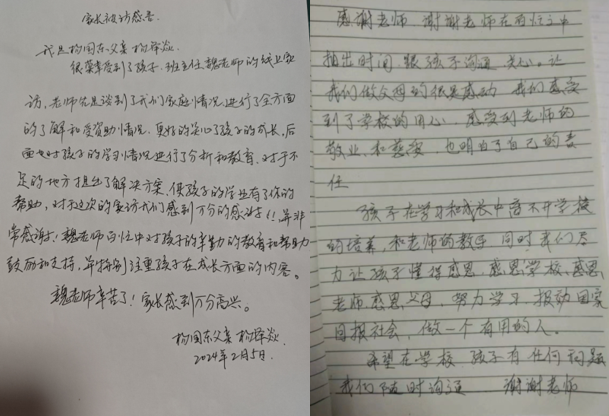 家长被访感言
我是杨国东父亲 杨泽焱
很荣幸受到了孩子，班主任魏老师的线上家
访，老师先是谈到了我们家庭情况，进行了全方面
的了解和受资助情况，更好的关心了孩子的成长，后
面也对孩子的学习情况进行了分析和教育，对于不
足的地方提出了解决方案，使孩子的学业有了很的
帮助，对于这次的家访我们感到万分的感谢!!异非
常感谢，魏老师百忙中对孩子的辛勤的教育和帮助
鼓励和支持，并特别注重孩子在成长方面的内容。
魏老师辛苦了！家长感到万分高兴。
杨国东父亲 杨泽焱
2024年2月5日.
感谢老师 谢谢老师在百忙之中
抽出时间跟孩子沟通 关心。让
我们做父母的很是感动 我们感受
到了学校的用心，感受到老师的
敬业，和慈爱，也明白了自己的责
任
孩子在学习和成长中离不开学校
的培养，和老师的教导 同时我们尽
力让孩子懂得感恩，感恩学校、感恩
老师 感恩父母，努力学习，报効国家
回报社会，做一个有用的人。
希望在学校 孩子有任何问题
我们随时沟通 谢谢老师